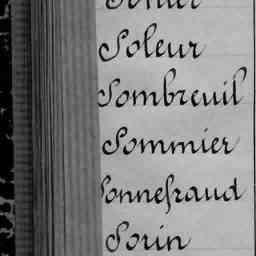 Soleur
Sombreuil
Sommier
Sonnefraud
Sorin